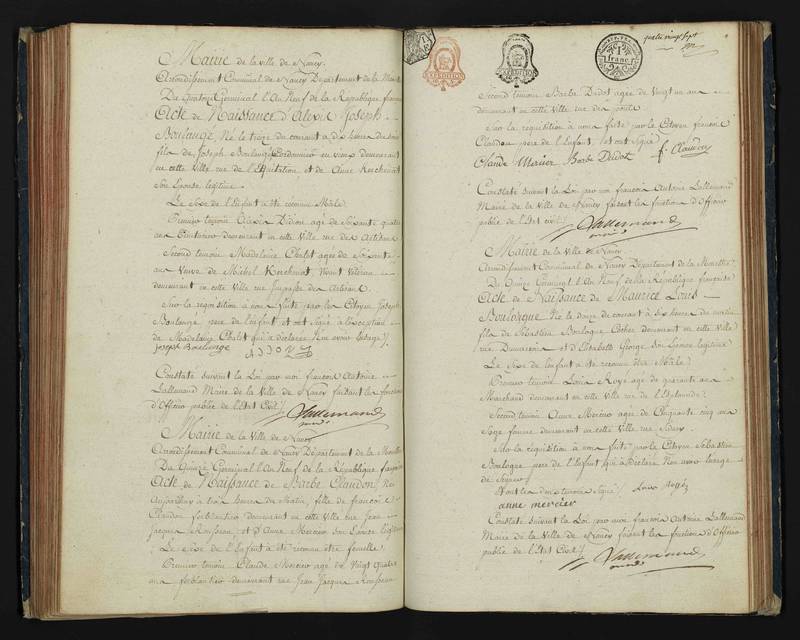 Mairie de la ville de Nancy.
Arrondissement Communal de Nancy Département de la Meurthe
Du quatorze Germinal l'An Neuf de la République française
Acte de Naissance d'Alexis Joseph
Boulangé Né le treize du courant à dix heures du soir
fils de Joseph Boulangé Cordonnier en vieux demeurant
en cette Ville rue de l'Equitation et de Anne Kerchenot
son Epouse légitime
Le Sexe de l'Enfant a été reconnu Mâle.
Premier témoin Alexis Didion agé de Soixante quatre
ans demeurant en cette Ville rue des Artisans
Second témoin Madelaine Chalot agée de Soixante
ans Veuve de Michel Kerchenot Vivant
demeurant en cette Ville rue des Artisans
Sur la requisition à nous faite par le Citoyen Joseph
Boulangé pere de l'enfant et ont signé à l'exception
de Madelaine Chalot qui a déclaré Ne savoir
joseph Boulange
Constaté suivant la Loi par moi françois Antoine
Lallemand Maire de la Ville de Nancy faisant les fonctions
d'Officier public de l'Etat Civil
Lallemand
Mairie de la Ville de Nancy
Arrondissement Communal de Nancy Département de la Meurthe
Du Quinze Germinal l'An Neuf de la République française
Acte de Naissance de Barbe Claudon, Née
Aujourd'hui à heures du Matin, fille de françois
Claudon ferblantier demeurant en cette Ville rue Jean
Jacques Rousseau, et d'Anne Mercier son Epouse légitime
Le Sexe de l'Enfant a été reconnu être femelle.
Premier témoin Claude Mercier agé de Vingt quatre
ans ferblantier demeurant rue Jean Jacques Rousseau
EXPEDITION
EXPEDITION
1 franc
quatre vingt sept
Second témoin Barbe Dudot agée de Vingt un ans
demeurant en cette Ville rue des ponts
Sur la requisition à nous faite par le Citoyen françois
Claudon pere de l'Enfant et ont signé
Claude Mercier Barbe Dudot f. Claudon
Constaté suivant la Loi par moi françois Antoine Lallemand
Maire de la Ville de Nancy faisant les fonctions d'Officier
public de l'Etat civil
Lallemand
Mairie de la Ville de Nancy.
Arrondissement Communal de Nancy Département de la Meurthe
Du Quinze Germinal l'An Neuf de la République française
Acte de Naissance de Maurice Louis
Boulogne Né le douze du courant à six heures du matin
fils de Sébastien Boulogne, Cocher demeurant en cette Ville
rue et d'Elisabeth George son Epouse légitime
Le Sexe de l'enfant a été reconnu être Mâle.
Premier témoin Louis Roye agé de quarante ans
Marchand demeurant en cette Ville rue de l'Esplanade.
Second témoin Anne Mercier agée de Cinquante cinq ans
Sage femme demeurant en cette Ville rue
Sur la réquisition à nous faite par le Citoyen Sébastien
Boulogne pere de l'Enfant qui a déclaré Ne savoir
Louis
anne mercier
Constaté suivant la Loi par moi françois Antoine Lallemand
Maire de la Ville de Nancy faisant les fonctions d'Officier
public de l'Etat Civil
Lallemand